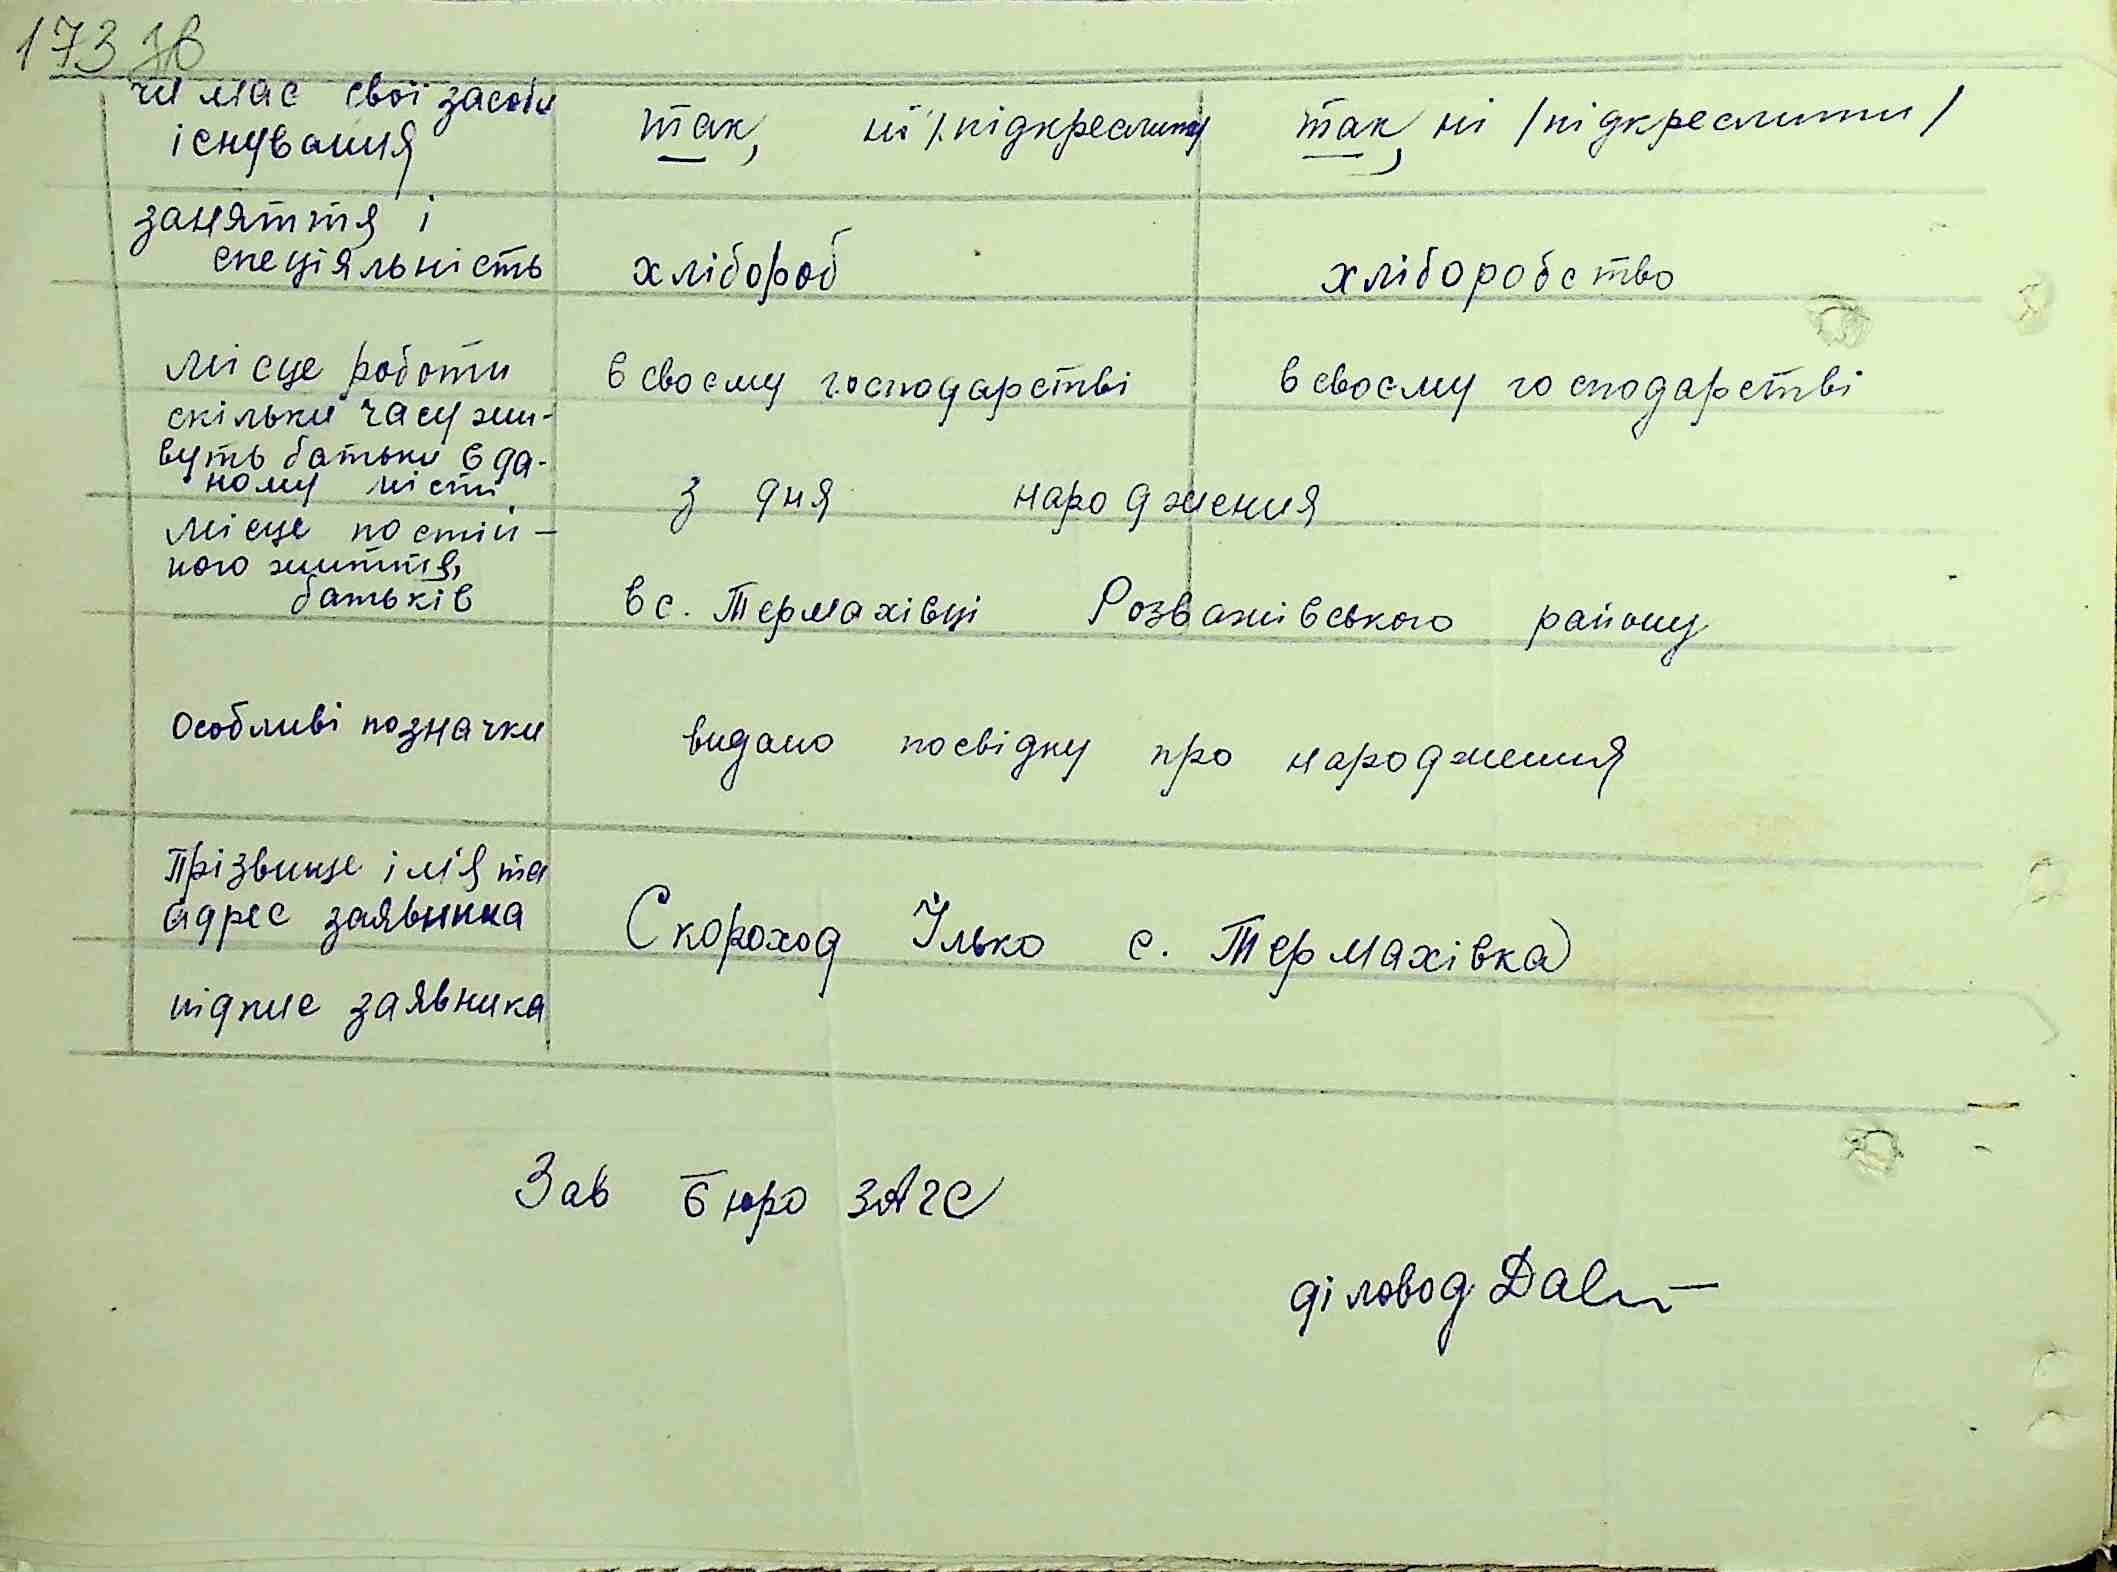 173 зв
чи має свої засоби
існування
так, ні /підкреслити
так, ні /підкреслити/
заняття і
спеціяльність
хлібороб
хліборобство
місце роботи
в своєму господарстві
в своєму господарстві
скільки часу жи-
вуть батьки в да-
ному місті
з дня народження
місце постій-
ного життя,
батьків
в с. Термахівці Розважівського району
Особливі позначки
видано посвідку про народження
Прізвище ім'я та
адрес заявника
Скороход Ілько с. Термахівка
підпис заявника
Зав Бюро ЗАГС
діловод